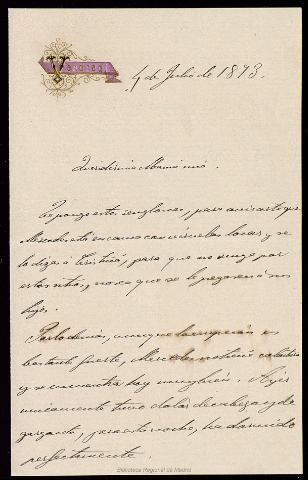 4 de Julio de 1893.
Queridisima Mamá mia:
Te pongo estos renglones, para avisarte que
Mercedes está en cama con viruelas locas y se
lo digas á Cristina, para que no venga por
esta no sea que se le peguen á sus
hijos.
Por lo demás, aunque la erupción es
bastante fuerte, Mercedes no tiene calentura
y se encuentra hoy muy bien. Ayer
unicamente tuvo dolor de cabeza y de
garganta, pero esta noche, ha dormido
perfectamente.
Biblioteca Regional de Madrid